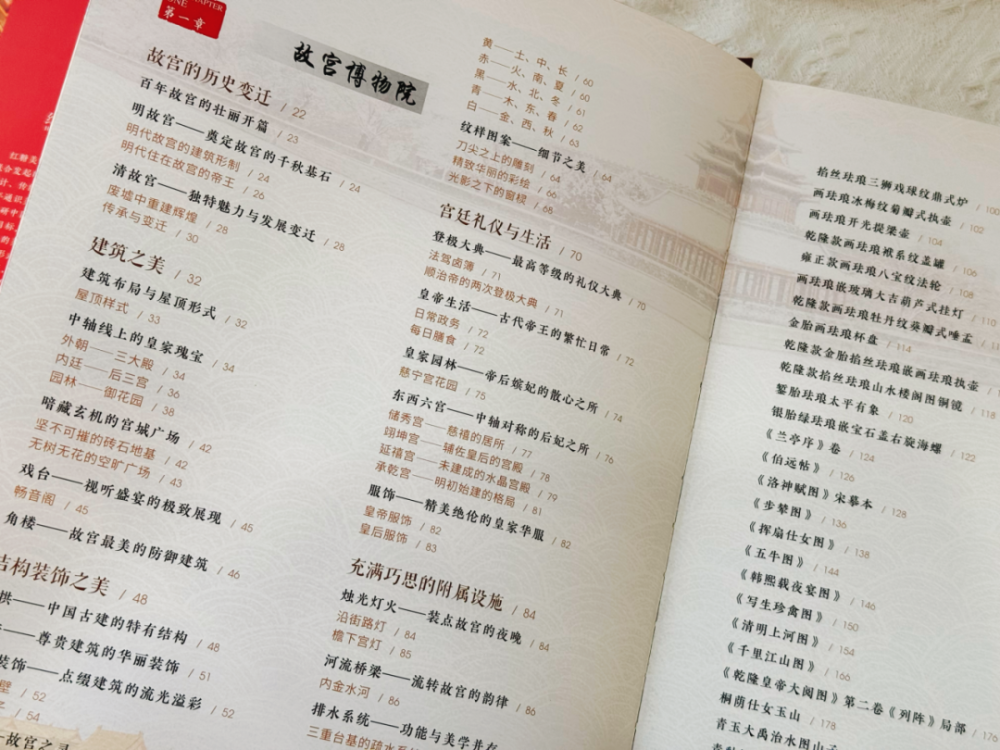 第一章
故宫博物院
故宫的历史变迁 / 22
百年故宫的壮丽开篇 / 23
明故宫——奠定故宫的千秋基石 / 24
明代故宫的建筑形制 / 24
明代住在故宫的帝王 / 26
清故宫——独特魅力与发展变迁 / 28
废墟中重建辉煌 / 28
传承与变迁 / 30
建筑之美 / 32
建筑布局与屋顶形式 / 32
屋顶样式 / 33
中轴线上的皇家瑰宝 / 34
外朝——三大殿 / 34
内廷——后三宫 / 36
园林——御花园 / 38
暗藏玄机的宫城广场 / 42
坚不可摧的砖石地基 / 42
无树无花的空旷广场 / 43
戏台——视听盛宴的极致展现 / 45
畅音阁 / 45
角楼——故宫最美的防御建筑 / 46
结构装饰之美 / 48
拱——中国古建的特有结构 / 48
——尊贵建筑的华丽装饰 / 51
装饰——点缀建筑的流光溢彩 / 52
壁 / 52
子 / 54
故宫之灵
黄——土、中、长 / 60
赤——火、南、夏 / 60
黑——水、北、冬 / 61
青——木、东、春 / 62
白——金、西、秋 / 63
纹样图案——细节之美 / 64
刀尖之上的雕刻 / 64
精致华丽的彩绘 / 66
光影之下的窗棂 / 68
宫廷礼仪与生活 / 70
登极大典——最高等级的礼仪大典 / 70
法驾卤簿 / 71
顺治帝的两次登极大典 / 71
皇帝生活——古代帝王的繁忙日常 / 72
日常政务 / 72
每日膳食 / 72
皇家园林——帝后嫔妃的散心之所 / 74
慈宁宫花园 / 75
东西六宫——中轴对称的后妃之所 / 76
储秀宫——慈禧的居所 / 77
翊坤宫——辅佐皇后的宫殿 / 78
延禧宫——未建成的水晶宫殿 / 79
承乾宫——明初始建的格局 / 81
服饰——精美绝伦的皇家华服 / 82
皇帝服饰 / 82
皇后服饰 / 83
充满巧思的附属设施 / 84
烛光灯火——装点故宫的夜晚 / 84
沿街路灯 / 84
檐下宫灯 / 85
河流桥梁——流转故宫的韵律 / 86
内金水河 / 86
排水系统——功能与美学并存
三重台基的疏水系
掐丝珐琅三狮戏球纹鼎式炉 / 100
画珐琅冰梅纹菊瓣式执壶 / 102
画珐琅开光提梁壶 / 104
乾隆款画珐琅袱系纹盖罐 / 106
雍正款画珐琅八宝纹法轮 / 108
画珐琅嵌玻璃大吉葫芦式挂灯 / 110
乾隆款画珐琅牡丹纹葵瓣式唾盂
金胎画珐琅杯盘 / 114
乾隆款金胎掐丝珐琅嵌画珐琅执壶
乾隆款掐丝珐琅山水楼阁图铜镜 / 118
錾胎珐琅太平有象 / 120
银胎绿珐琅嵌宝石盖右旋海螺 / 122
《兰亭序》卷 / 124
《伯远帖》 / 126
《洛神赋图》宋摹本 / 128
《步辇图》 / 136
《挥扇仕女图》 / 138
《五牛图》 / 144
《韩熙载夜宴图》 / 146
《写生珍禽图》 / 150
《清明上河图》 / 154
《千里江山图》 / 166
《乾隆皇帝大阅图》第二卷《列阵》局部 / 176
桐荫仕女玉山 / 178
青玉大禹治水图山子